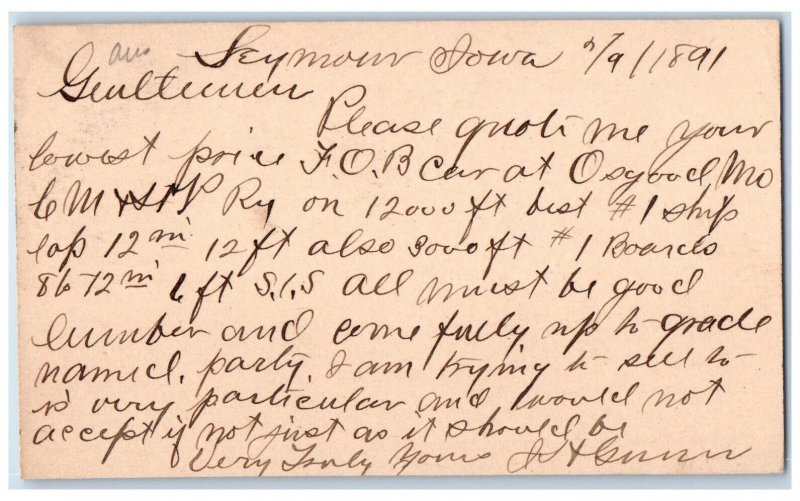 ans
Seymour Iowa 7/9/1891
Gentlemen
Please quote me your
lowest price F.O.B car at Osgood Mo
C M & St P Ry on 12000 ft best #1 ship
lap 12 in 12 ft also 3000 ft #1 Boards
8 to 12 in 6 ft S.1.S all must be good
lumber and come fully up to grade
named. party I am trying to sell to
is very particular and would not
accept if not just as it should be
Very Truly Yours Gunn